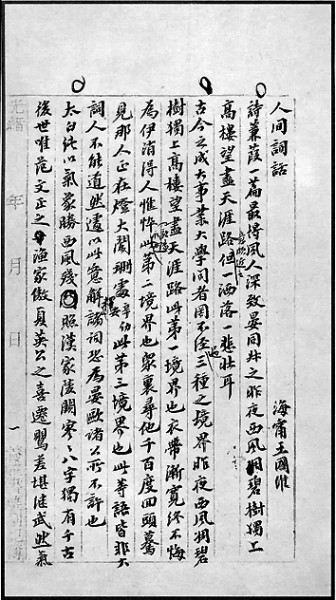 人间詞話　海甯王國維
詩蒹葭一篇最得風人深致晏同叔之昨夜西風凋碧樹獨上
高樓望盡天涯路但一洒落一悲壯耳
古今之成大事業大學问者罔不经過三種之境界昨夜西風凋碧
樹獨上高樓望盡天涯路此第一境界也衣帶漸寬終不悔
為伊消得人憔悴此第二境界也衆裏尋他千百度回頭驀
見那人正在燈火闌珊處辛幼安此第三境界也此等語皆非大
詞人不能道然遽以此意解諸詞恐為晏歐諸公所不許也
太白純以氣象勝西風殘照漢家陵闕寥寥八字獨有千古
後世唯范文正之漁家傲夏英公之喜遷鶯差堪繼武然氣
光緒　年　月　日　一